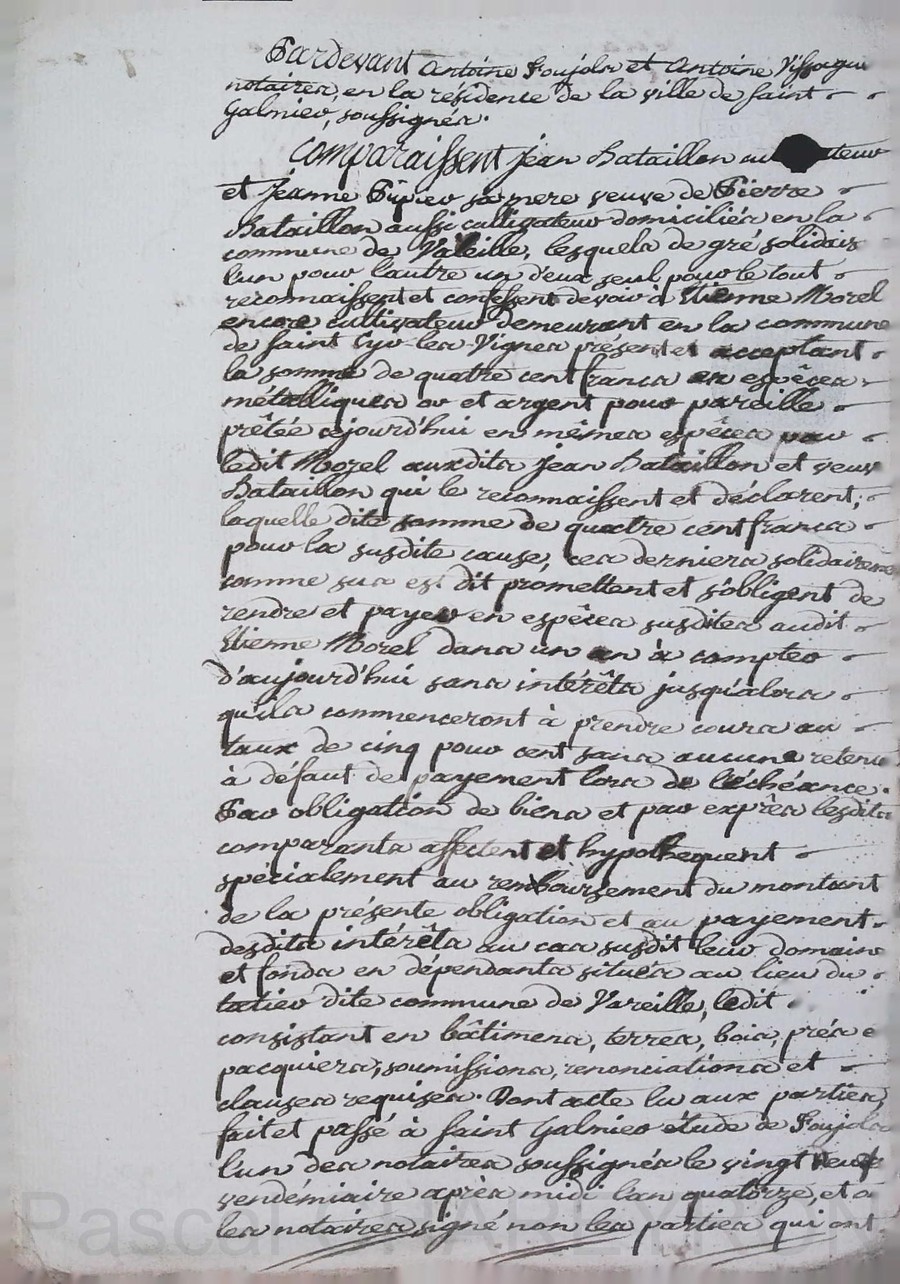 Pardevant Antoine Soujola et Antoine
notaires, en la résidence de la ville de Saint
Galmier, soussignés.
Comparaissent Jean Bataillon
et Jeanne Pipier sa mere veuve de Pierre
Bataillon aussi cultivateur domiciliés en la
commune de Valeille, lesquels de gré solidair
l'un pour l'autre un d'eux seul pour le tout
reconnaissent et confessent devoir à Etienne Morel
encore cultivateur demeurant en la commune
de Saint Cyr-les-Vignes présent et acceptant
la somme de quatre cent francs en espèces
métalliques or et argent pour pareille
prêtée cejourd'hui en mêmes espèces par
ledit Morel auxdits Jean Bataillon et veuve
Bataillon qui le reconnaissent et déclarent;
laquelle dite somme de quatre cent francs
pour la susdite cause, ces derniers solidairement
comme sus est dit promettent et s'obligent de
rendre et payer en espèces susdites audit
Etienne Morel dans un an à compter
d'aujourd'hui sans intérêts jusqu'alors
qu'ils commenceront à prendre cours au
taux de cinq pour cent sans aucune retenue
à défaut de payement lors de l'échéance.
Par obligation de biens et par exprès lesdits
comparants affectent et hypothequent
spécialement au remboursement du montant
de la présente obligation et au payement
desdits intérêts au cas susdit leur domaine
et fonds en dépendants situés au lieu du
tatier dite commune de Vareille, ledit
consistant en bâtimens, terres, bois, prés et
pacquiers, soumissions, renonciations et
clauses requises. Dont acte lu aux parties,
fait et passé à Saint Galmier étude de Soujola
l'un des notaires soussignés le vingt neuf
vendémiaire après midi l'an quatorze, et a
les notaires signé non les parties qui ont
Pascal CHARLEYRON